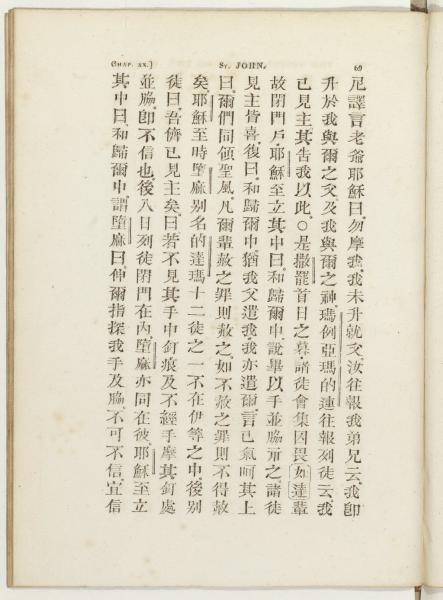 CHAP. XX.] ST. JOHN. 69
尼譯言老爺耶穌曰勿摩我我未升就父汝往報我弟兄云我卽
升於我與爾之父及我與爾之神瑪例亞瑪的連往報列徒云我
已見主其吿我以此○是撒罷首日之暮諸徒會集因畏如達輩
故閉門戶耶穌至立其中曰和歸爾中說畢以手並脇示之諸徒
見主皆喜復曰和歸爾中猶我父遣我我亦遣爾言已氣呵其上
曰爾們同領聖風凡爾輩赦之罪則赦之如不赦之罪則不得赦
矣耶穌至時墮麻别名的達瑪十二徒之一不在伊等之中後别
徒曰吾儕已見主矣曰若不見其手中釘痕及不經手摩其釘處
並脇卽不信也後八日列徒閉門在內墮麻亦同在彼耶穌至立
其中曰和歸爾中謂墮麻曰伸爾指探我手及脇不可不信宜信